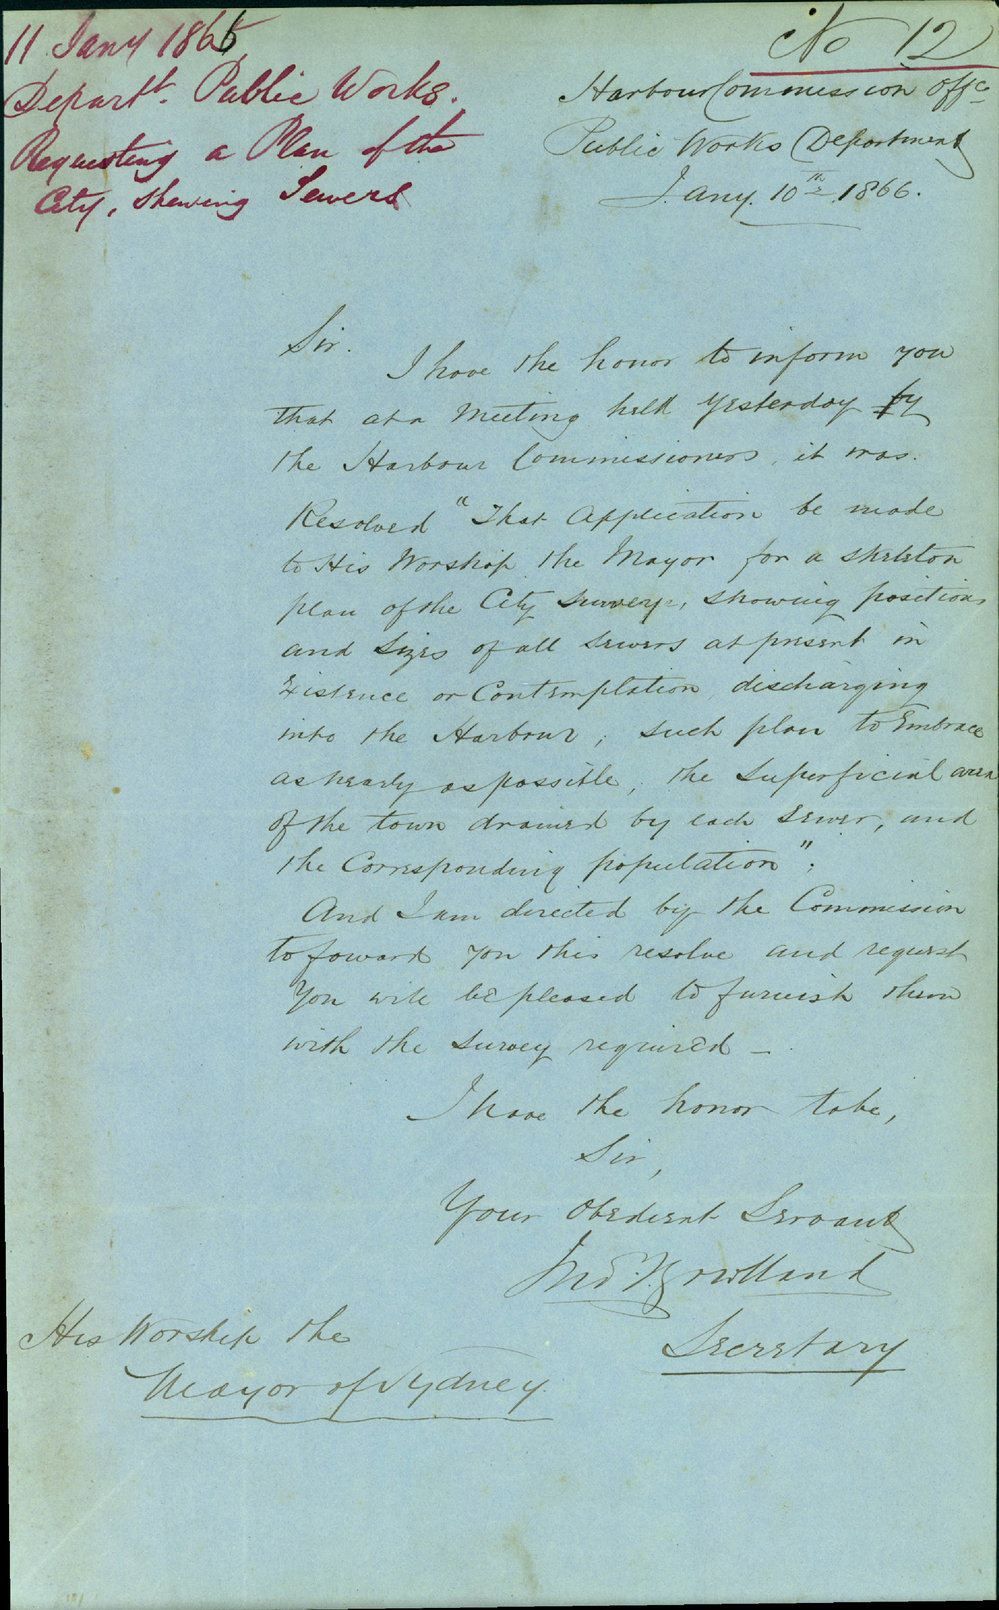 11 Jany 1866
Departt. Public Works.
Requesting a Plan of the
City, shewing Sewers
No 12
Harbour Commission Offce
Public Works Department
Jany. 10th 1866.
Sir.
I have the honor to inform you
that at a Meeting held yesterday by
the Harbour Commissioners, it was.
Resolved "That Application be made
to His Worship the Mayor for a skeleton
plan of the City Survey, showing positions
and sizes of all sewers at present in
Existence or Contemplation discharging
into the Harbour; such plan to Embrace
as nearly as possible, the superficial area
of the town drained by each sewer, and
the Corresponding population".
And I am directed by the Commission
to foward you this resolve and request
You will be pleased to furnish them
with the survey required —
I have the honor to be,
Sir,
Your Obedient Servant
Secretary
His Worship the
Mayor of Sydney